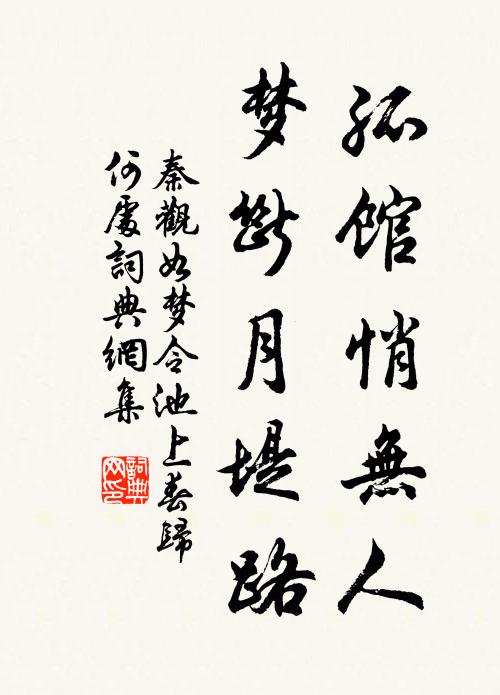 孤館悄無人
梦断月堤路
秦觀如梦令池上春歸
何處詞典網集
詞典
网印